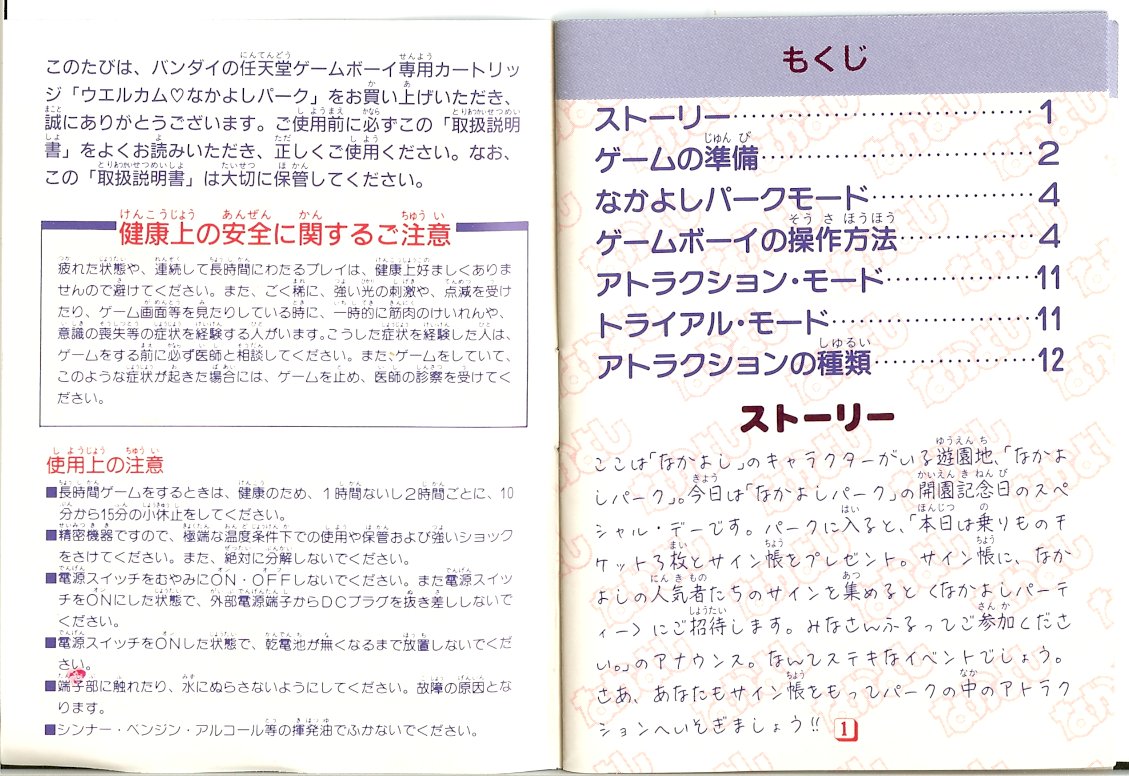 このたびは、バンダイの任天堂ゲームボーイ専用カートリッ
ジ「ウエルカム♡なかよしパーク」をお買い上げいただき、
誠にありがとうございます。ご使用前に必ずこの「取扱説明
書」をよくお読みいただき、正しくご使用ください。なお、
この「取扱説明書」は大切に保管してください。
健康上の安全に関するご注意
疲れた状態や、連続して長時間にわたるプレイは、健康上好ましくありま
せんので避けてください。また、ごく稀に、強い光の刺激や、点滅を受け
たり、ゲーム画面等を見たりしている時に、一時的に筋肉のけいれんや、
意識の喪失等の症状を経験する人がいます。こうした症状を経験した人は、
ゲームをする前に必ず医師と相談してください。また、ゲームをしていて、
このような症状が起きた場合には、ゲームを止め、医師の診察を受けてく
ださい。
使用上の注意
■長時間ゲームをするときは、健康のため、1時間ないし2時間ごとに、10
分から15分の小休止をしてください。
■精密機器ですので、極端な温度条件下での使用や保管および強いショック
をさけてください。また、絶対に分解しないでください。
■電源スイッチをむやみにON・OFFしないでください。また電源スイッ
チをONにした状態で、外部電源端子からDCプラグを抜き差ししないで
ください。
■電源スイッチをONした状態で、乾電池が無くなるまで放置しないでくだ
さい。
■端子部に触れたり、水にぬらさないようにしてください。故障の原因とな
ります。
■シンナー・ベンジン・アルコール等の揮発油でふかないでください。
もくじ
ストーリー……………………………1
ゲームの準備…………………………2
なかよしパークモード………………4
ゲームボーイの操作方法……………4
アトラクション・モード……………11
トライアル・モード…………………11
アトラクションの種類………………12
ストーリー
ここは「なかよし」のキャラクターがいる遊園地、「なかよ
しパーク」。今日は「なかよしパーク」の開園記念日のスペ
シャル・デーです。パークに入ると、「本日は乗りものチ
ケット3枚とサイン帳をプレゼント。サイン帳に、なか
よしの人気者たちのサインを集めると〈なかよしパーテ
ィー〉にご招待します。みなさんふるってご参加くださ
い。」のアナウンス。なんてステキなイベントでしょう。
さあ、あなたもサイン帳をもってパークの中のアトラク
ションへいそぎましょう!!
1